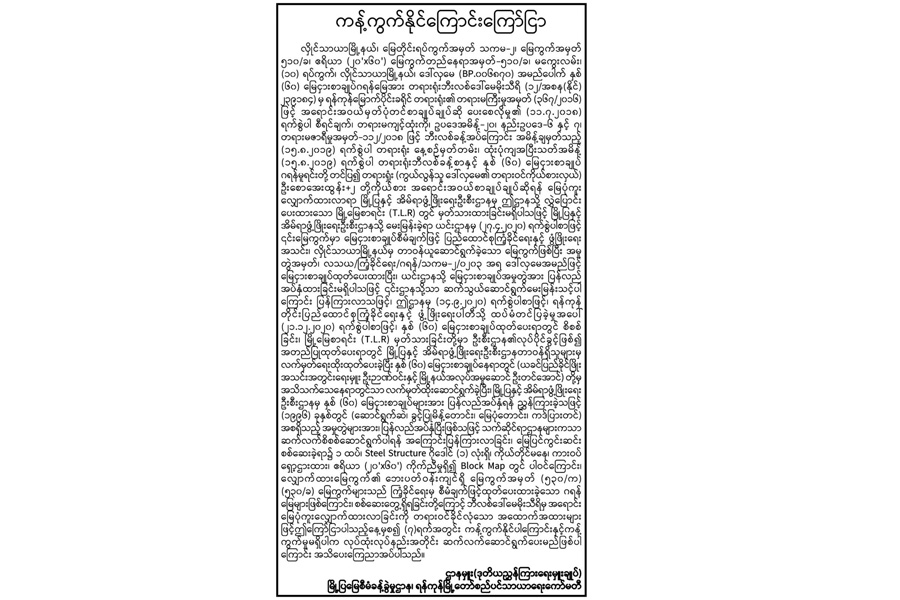 ကန့်ကွက်နိုင်ကြောင်းကြော်ငြာ
လှိုင်သာယာမြို့နယ်၊ မြေတိုင်းရပ်ကွက်အမှတ် သကမ-၂၊ မြေကွက်အမှတ်
၅၁၀/ခ၊ ဧရိယာ (၂၀'x၆၀') မြေကွက်တည်နေရာအမှတ်-၅၁၀/ခ၊ မကွေးလမ်း၊
(၁၀) ရပ်ကွက်၊ လှိုင်သာယာမြို့နယ်၊ ဒေါ်လှမေ (BP.၀၀၆၈၇၀) အမည်ပေါက် နှစ်
(၆၀) မြေငှားစာချုပ်ဂရန်မြေအား တရားရုံးဘီးလစ်ဒေါ်မေမိုးသီရိ (၁၂/အစန(နိုင်)
၂၃၉၁၈၄) မှ ရန်ကုန်မြောက်ပိုင်းခရိုင် တရားရုံး၏ တရားမကြီးမှုအမှတ် (၃၆၇/၂၀၁၆)
ဖြင့် အရောင်းအဝယ်မှတ်ပုံတင်စာချုပ်ချုပ်ဆို ပေးစေလိုမှု၏ (၁၁.၇.၂၀၁၈)
ရက်စွဲပါ စီရင်ချက်၊ တရားမကျင့်ထုံးကို၊ ဥပဒေအမိန့်-၂၀၊ နည်းဥပဒေ-၆ နှင့် ၇၊
တရားမဇာရီမှုအမှတ်-၁၁၂/၂၀၁၈ ဖြင့် ဘီးလစ်ခန့်အပ်ကြောင်း အမိန့်ချမှတ်သည့်
(၁၅.၈.၂၀၁၉) ရက်စွဲပါ တရားရုံး နေ့စဉ်မှတ်တမ်း၊ ထုံးပုံကျအပြီးသတ်အမိန့်
(၁၅.၈.၂၀၁၉) ရက်စွဲပါ တရားရုံးဘီလစ်ခန့်စာနှင့် နှစ် (၆၀) မြေငှားစာချုပ်
ဂရန်မူရင်းတို့ တင်ပြ၍ တရားရုံး (ကွယ်လွန်သူ ဒေါ်လှမေ၏ တရားဝင်ကိုယ်စားလှယ်)
ဦးစောအေးထွန်း+၂ တို့ကိုယ်စား အရောင်းအဝယ်စာချုပ်ချုပ်ဆိုရန် မြေပုံကူး
လျှောက်ထားလာရာ မြို့ပြနှင့် အိမ်ရာဖွံ့ဖြိုးရေးဦးစီးဌာနမှ ဤဌာနသို့ လွှဲပြောင်း
ပေးထားသော မြို့မြေစာရင်း (T.L.R) တွင် မှတ်သားထားခြင်းမရှိပါသဖြင့် မြို့ပြနှင့်
အိမ်ရာဖွံ့ဖြိုးရေးဦးစီးဌာနသို့ မေးမြန်းခဲ့ရာ ယင်းဌာနမှ (၂၇.၄.၂၀၂၀) ရက်စွဲပါစာဖြင့်
၎င်းမြေကွက်မှာ မြေငှားစာချုပ်စီမံချက်ဖြင့် ပြည်ထောင်စုကြံ့ခိုင်ရေးနှင့် ဖွံ့ဖြိုးရေး
အသင်း၊ လှိုင်သာယာမြို့နယ်မှ တာဝန်ယူဆောင်ရွက်ခဲ့သော မြေကွက်ဖြစ်ပြီး အမှု
တွဲအမှတ်၊ လသယ/ကြံ့ခိုင်ရေး/ဂရန်/သကမ-၂/၀၂၀၃ အရ ဒေါ်လှမေအမည်ဖြင့်
မြေငှားစာချုပ်ထုတ်ပေးထားပြီး၊ ယင်းဌာနသို့ မြေငှားစာချုပ်အမှုတွဲအား ပြန်လည်
အပ်နှံထားခြင်းမရှိပါသဖြင့် ၎င်းဌာနသို့သာ ဆက်သွယ်ဆောင်ရွက်မေးမြန်းသင့်ပါ
ကြောင်း ပြန်ကြားလာသဖြင့်၊ ဤဌာနမှ (၁၄.၉.၂၀၂၀) ရက်စွဲပါစာဖြင့်၊ ရန်ကုန်
တိုင်းပြည်ထောင်စုကြံ့ခိုင်ရေးနှင့် ဖွံ့ဖြိုးရေးပါတီသို့ ထပ်မံတင်ပြခဲ့မှုအပေါ်
(၂၁.၁၂.၂၀၂၀) ရက်စွဲပါစာဖြင့်၊ နှစ် (၆၀) မြေငှားစာချုပ်ထုတ်ပေးရာတွင် စိစစ်
ခြင်း၊ မြို့မြေစာရင်း (T.L.R) မှတ်သားခြင်းတို့မှာ ဦးစီးဌာန၏လုပ်ပိုင်ခွင့်ဖြစ်၍
အတည်ပြုထုတ်ပေးရာတွင် မြို့ပြနှင့် အိမ်ရာဖွံ့ဖြိုးရေးဦးစီးဌာနတာဝန်ရှိသူများမှ
လက်မှတ်ရေးထိုးထုတ်ပေးခဲ့ပြီး နှစ် (၆၀) မြေငှားစာချုပ်နေရာတွင် (ယခင်ပြည်ခိုင်ဖြိုး
အသင်းအတွင်းရေးမှူး ဦးဉာဏ်ဝင်းနှင့် မြို့နယ်အလုပ်အမှုဆောင် ဦးတင်အောင်) တို့မှ
အသိသက်သေနေရာတွင်သာ လက်မှတ်ထိုးဆောင်ရွက်ခဲ့ပြီး၊ မြို့ပြနှင့် အိမ်ရာဖွံ့ဖြိုးရေး
ဦးစီးဌာနမှ နှစ် (၆၀) မြေငှားစာချုပ်များအား ပြန်လည်အပ်နှံရန် ညွှန်ကြားခဲ့သဖြင့်
(၁၉၉၆) ခုနှစ်တွင် (ဆောင်ရွက်ဆဲ၊ ခွင့်ပြုမိန့်တောင်း၊ မြေပုံတောင်း၊ ကဒ်ပြားတင်)
အစရှိသည့် အမှုတွဲများအား ပြန်လည်အပ်နှံပြီးဖြစ်သဖြင့် သက်ဆိုင်ရာဌာနများကသာ
ဆက်လက်စိစစ်ဆောင်ရွက်ပါရန် အကြောင်းပြန်ကြားလာခြင်း၊ မြေပြင်ကွင်းဆင်း
စစ်ဆေးခဲ့ရာ၌ ၁ ထပ်၊ Steel Structure ဂိုဒေါင် (၁) လုံးရှိ၊ ကိုယ်တိုင်မနေ၊ ကားဝပ်
ရှော့ဌားထား၊ ဧရိယာ (၂၀'x၆၀') ကိုက်ညီမှုရှိ၍ Block Map တွင် ပါဝင်ကြောင်း၊
လျှောက်ထားမြေကွက်၏ ဘေးပတ်ဝန်းကျင်ရှိ မြေကွက်အမှတ် (၅၃၀/က)
(၅၃၀/ခ) မြေကွက်များသည် ကြံ့ခိုင်ရေးမှ စီမံချက်ဖြင့်ထုတ်ပေးထားခဲ့သော ဂရန်
မြေများဖြစ်ကြောင်း၊ စစ်ဆေးတွေ့ရှိရခြင်းတို့ကြောင့် ဘီလစ်ဒေါ်မေမိုးသီရိမှ အရောင်း
မြေပုံကူးလျှောက်ထားလာခြင်းကို တရားဝင်ခိုင်လုံသော အထောက်အထားများ
ဖြင့်ဤကြော်ငြာပါသည့်နေ့မှစ၍ (၇)ရက်အတွင်း ကန့်ကွက်နိုင်ပါကြောင်းနှင့်ကန့်
ကွက်မှုမရှိပါက လုပ်ထုံးလုပ်နည်းအတိုင်း ဆက်လက်ဆောင်ရွက်ပေးမည်ဖြစ်ပါ
ကြောင်း အသိပေးကြေညာအပ်ပါသည်။
ဌာနမှူး(ဒုတိယညွှန်ကြားရေးမှူးချုပ်)
မြို့ပြမြေစီမံခန့်ခွဲမှုဌာန၊ ရန်ကုန်မြို့တော်စည်ပင်သာယာရေးကော်မတီ